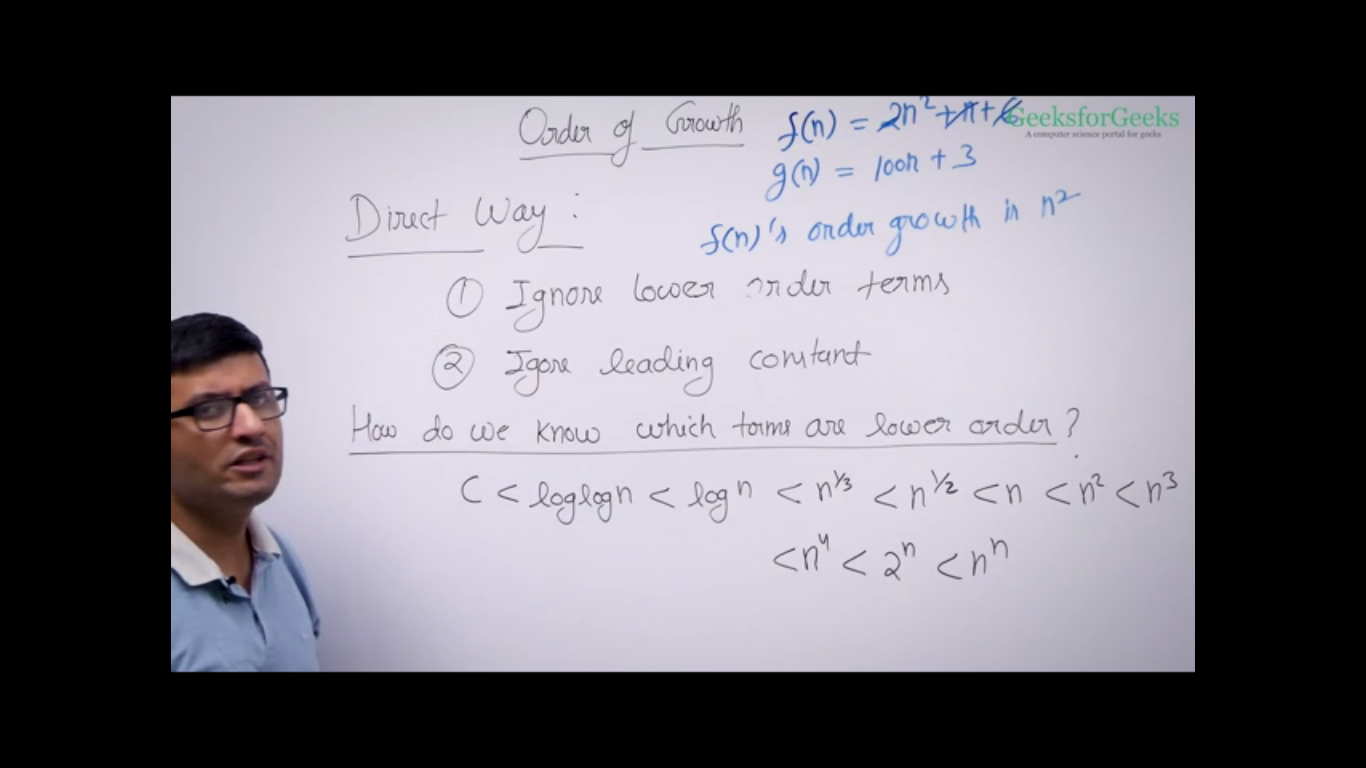 Order of Growth
f(n) = 2n² + n + 6
GeeksforGeeks
A computer science portal for geeks
g(n) = 100n + 3
Direct Way :
f(n)'s order growth is n²
① Ignore lower order terms
② Igore leading constant
How do we know which terms are lower order ?
C < loglogn < logn < n^1/3 < n^1/2 < n < n² < n³
< n⁴ < 2ⁿ < nⁿ